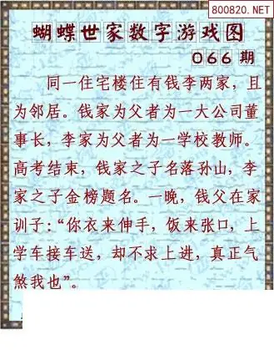 800820.NET
蝴蝶世家数字游戏图
066 期
同一住宅楼住有钱李两家，且
为邻居。钱家为父者为一大公司董
事长，李家为父者为一学校教师。
高考结束，钱家之子名落孙山，李
家之子金榜题名。一晚，钱父在家
训子：“你衣来伸手，饭来张口，上
学车接车送，却不求上进，真正气
煞我也”。